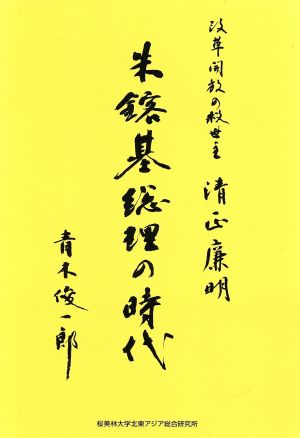 改革開放の救世主 清正廉明
朱鎔基総理の時代
青木俊一郎
桜美林大学北東アジア総合研究所